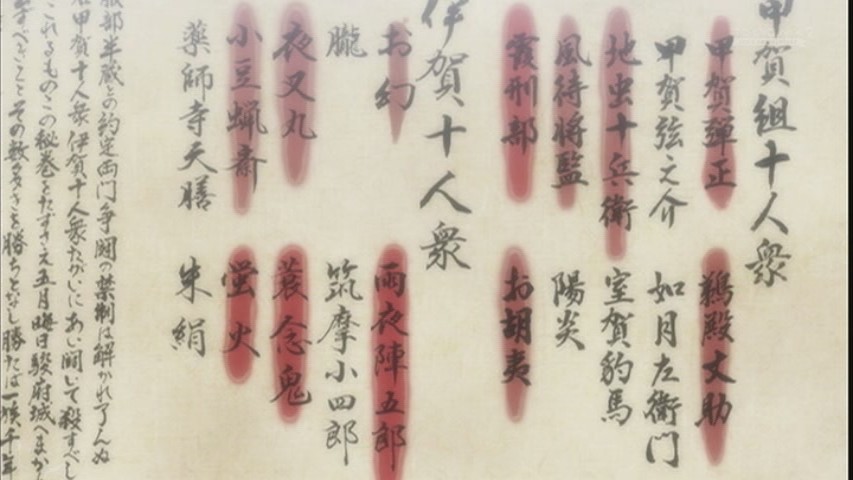 甲賀組十人衆
甲賀弾正
鵜殿丈助
甲賀弦之介
如月左衛門
地虫十兵衛
室賀豹馬
風待将監
陽炎
霞刑部
お胡夷
伊賀十人衆
お幻
雨夜陣五郎
朧
筑摩小四郎
夜叉丸
蓑念鬼
小豆蝋斎
蛍火
薬師寺天膳
朱絹
服部半蔵との約定両門争闘の禁制は解かれ了んぬ
甲賀十人衆伊賀十人衆たがいにあい闘いて殺すべし
これるものこの秘巻をたずさえ五月晦日駿府城へまか
すべきことその数多きを勝ちとなし勝たば一族千年